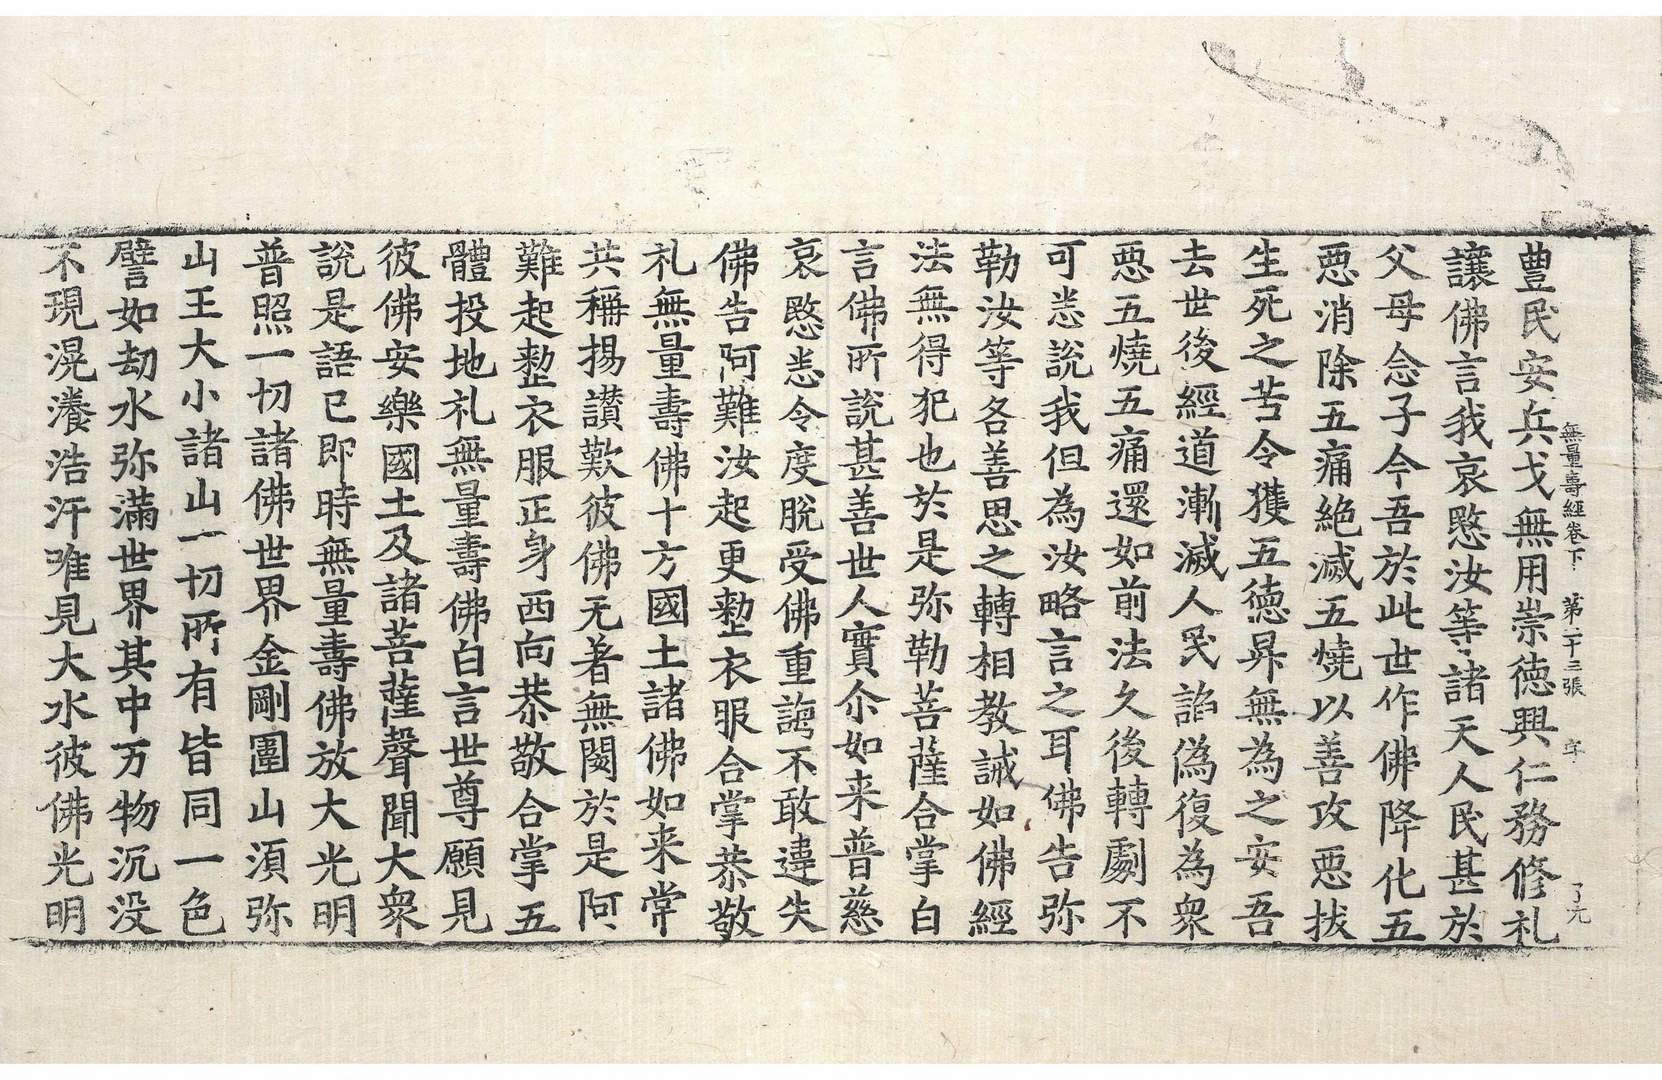 無量壽經卷下 第二十三張 字 了元
豊民安兵戈無用崇德興仁務修礼
讓佛言我哀愍汝等諸天人民甚於
父母念子今吾於此世作佛降化五
惡消除五痛絶滅五燒以善攻惡拔
生死之苦令獲五德昇無為之安吾
去世後經道漸滅人民諂偽復為衆
惡五燒五痛還如前法久後轉劇不
可悉說我但為汝略言之耳佛告弥
勒汝等各善思之轉相教誡如佛經
法無得犯也於是弥勒菩薩合掌白
言佛所說甚善世人實尒如来普慈
哀愍悉令度脫受佛重誨不敢違失
佛告阿難汝起更整衣服合掌恭敬
礼無量壽佛十方國土諸佛如来常
共稱揚讃歎彼佛无著無閡於是阿
難起整衣服正身西向恭敬合掌五
體投地礼無量壽佛白言世尊願見
彼佛安樂國土及諸菩薩聲聞大衆
說是語已即時無量壽佛放大光明
普照一切諸佛世界金剛圍山湏弥
山王大小諸山一切所有皆同一色
譬如劫水弥滿世界其中万物沉没
不現滉瀁浩汗唯見大水彼佛光明